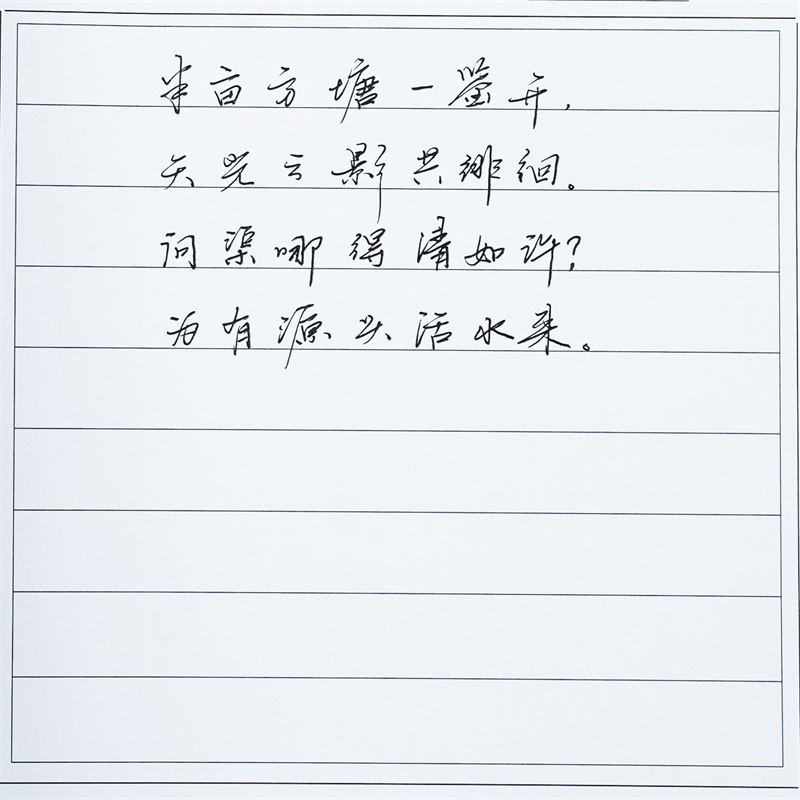 半亩方塘一鉴开，
天光云影共徘徊。
问渠哪得清如许？
为有源头活水来。